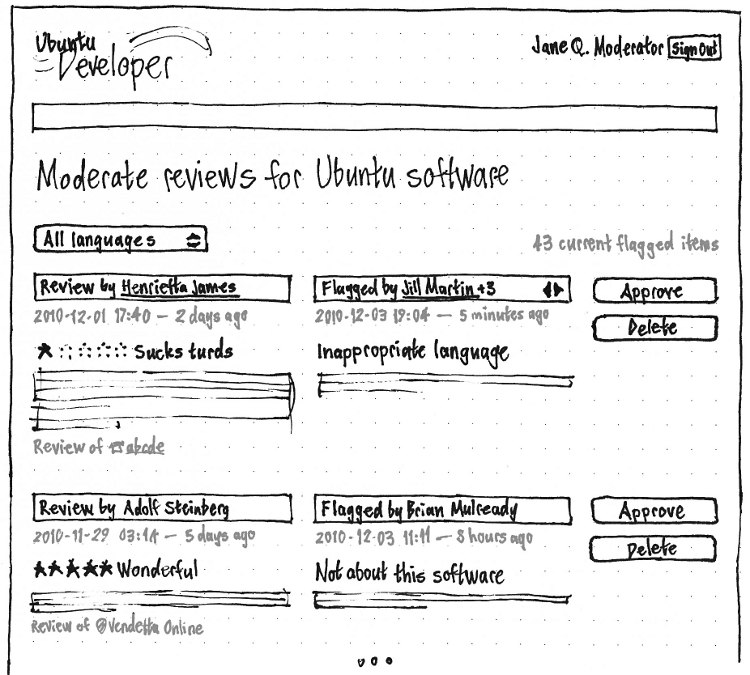 Ubuntu
Developer
Jane Q. Moderator Sign Out
Moderate reviews for Ubuntu software
All languages
43 current flagged items
Review by Henrietta James
2010-12-01 17:40 — 2 days ago
Sucks turds
Review of abcde
Flagged by Jill Martin +3
2010-12-03 19:04 — 5 minutes ago
Inappropriate language
Approve
Delete
Review by Adolf Steinberg
2010-11-29 03:14 — 5 days ago
Wonderful
Review of Vendetta Online
Flagged by Brian Mulready
2010-12-03 11:11 — 8 hours ago
Not about this software
Approve
Delete